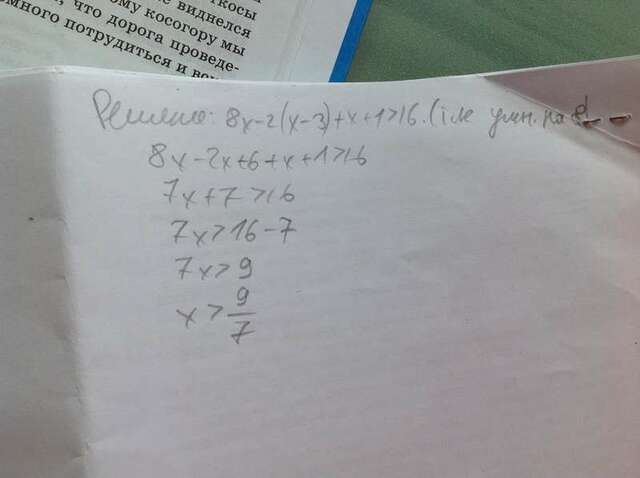 ткосы
не виднелся
ому косогору мы
, что дорога проведе-
омного потрудиться и
Решение: 8x-2(x-3)+x+1>16. ( умн. на 8
8x-2x+6+x+1>16
7x+7>16
7x>16-7
7x>9
x>9/7